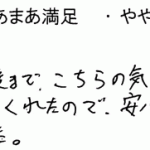 あまあ満足 ・やや
まで、こちらの気
くれたので、安
。